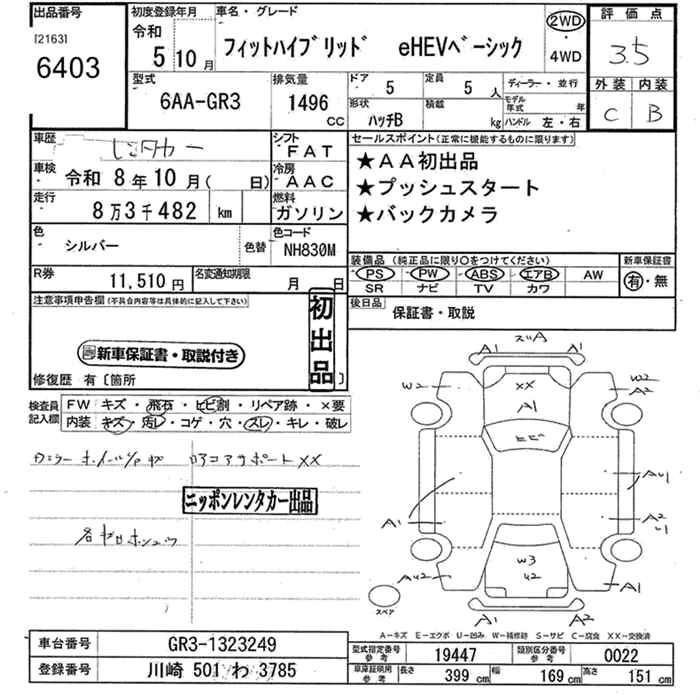 出品番号
[2163]
6403
初度登録年月
令和
5 10月
車名・グレード
フィットハイブリッド eHEVベーシック
2WD
・
4WD
評価点
3.5
外装 内装
C B
型式
6AA-GR3
排気量
1496
CC
ドア
5
定員
5 人
形状
ハッチB
積載
kg
ディーラー・並行
モデル年式 年
ハンドル 左・右
車歴
レンタカー
シフト
FAT
車検 令和 8年10月( 日)
冷房
AAC
走行
8万3千482 km
燃料
ガソリン
色
シルバー
色替
色コード
NH830M
R券
11,510円
名変通知期限
月 日
セールスポイント(正常に機能するものに限ります)
★AA初出品
★プッシュスタート
★バックカメラ
装備品(純正品に限り○をつけてください)
PS PW ABS エアB AW
SR ナビ TV カワ
新車保証書
有・無
後日品 保証書・取説
注意事項申告欄(不具合内容等は具体的に記入して下さい)
初出品
新車保証書・取説付き
修復歴 有〔箇所 〕
検査員記入欄
FW キズ・飛石・ヒビ割・リペア跡・×要
内装 キズ・汚レ・コゲ・穴・スレ・キレ・破レ
コアサポートXX
ニッポンレンタカー出品
A1 A1
XX
A1
ヒビ
W2
W2
A2
A1
A2
W3
U2
AU2
A1
A1 A2
スペア
A-キズ E-エクボ U-凹み W-補修跡 S-サビ C-腐食 XX-交換済
車台番号 GR3-1323249
登録番号 川崎 501 わ 3785
型式指定番号
参考
19447
類別区分番号
参考
0022
車庫証明用
参考
長さ 399 cm 幅 169 cm 高さ 151 cm